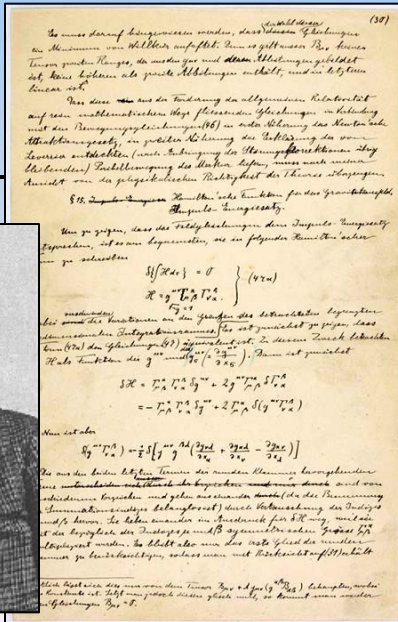 (30)
Es muss darauf hingewiesen werden, dass der Wahl dieser Gleichungen
ein Minimum von Willkür anhaftet. Denn es gibt ausser Bμν keinen
Tensor zweiten Ranges, der aus den gμν und deren Ableitungen gebildet
ist, keine höheren als zweite Ableitungen enthält, und in letzteren
linear ist.*
Dass diese aus der Forderung der allgemeinen Relativität
auf rein mathematischem Wege fliessenden Gleichungen in Verbindung
mit den Bewegungsgleichungen (46) in erster Näherung das Newton'sche
Attraktionsgesetz, in zweiter Näherung die Erklärung der von
Leverrier entdeckten (nach Anbringung der Störungskorrektionen übrig
bleibenden) Perihelbewegung des Merkur liefern, muss nach meiner
Ansicht von der physikalischen Richtigkeit der Theorie überzeugen.
§ 15. Hamilton'sche Funktion für das Gravitationsfeld,
Impuls-Energiesatz.
Um zu zeigen, dass die Feldgleichungen dem Impuls-Energiesatz
entsprechen, ist es am bequemsten, sie in folgender Hamilton'scher
zu schreiben
δ{∫H dτ} = 0
H = g^μν Γ^α_μβ Γ^β_να } (47a)
√-g = 1
verschwinden
die Variationen an den Grenzen des betrachteten begrenzten
Integrationsraumes. Es ist zunächst zu zeigen, dass
(47a) den Gleichungen (47) äquivalent ist. Zu diesem Zweck betrachten
H als Funktion der g^μν und g^μν_σ (= ∂g^μν/∂x_σ). Dann ist zunächst
δH = Γ^α_μβ Γ^β_να δg^μν + 2g^μν Γ^α_μβ δΓ^β_να
= - Γ^α_μβ Γ^β_να δg^μν + 2Γ^α_μβ δ(g^μν Γ^β_να)
Nun ist aber
δ(g^μν Γ^β_να) = -1/2 δ[g^μν g^βλ (∂g_νλ/∂x_α + ∂g_αλ/∂x_ν - ∂g_αν/∂x_λ)]
Die aus den beiden letzten Termen der runden Klammer hervorgehenden
sind von
verschiedenem Vorzeichen und gehen auseinander (da die Benennung
Summationsindizes belanglos ist) durch Vertauschung der Indizes
und β hervor. Sie heben einander im Ausdruck für δH weg, weil sie
der bezüglich der Indizes μ und β symmetrischen Grösse Γ^α_μβ
multipliziert werden. Es bleibt also nur das erste Glied der runden
zu berücksichtigen, sodass man mit Rücksicht auf (31) erhält
lässt sich dies nur von dem Tensor Bμν + λ gμν (g^αβ Bαβ) behaupten, wobei
Konstante ist. Setzt man jedoch diesen gleich null, so kommt man wieder
Gleichungen Bμν = 0.